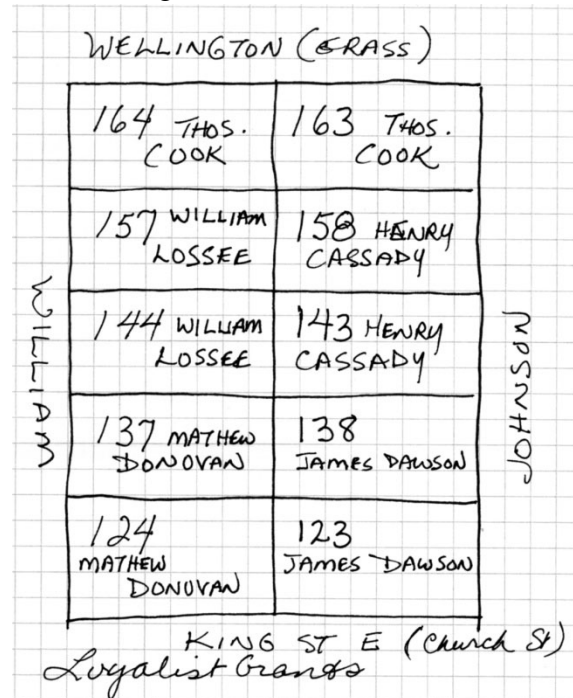 WELLINGTON (GRASS)
164 THOS.
COOK
163 THOS.
COOK
157 WILLIAM
LOSSEE
158 HENRY
CASSADY
144 WILLIAM
LOSSEE
143 HENRY
CASSADY
WILLIAM
JOHNSON
137 MATHEW
DONOVAN
138
JAMES DAWSON
124
MATHEW
DONOVAN
123
JAMES DAWSON
KING ST E (Church St)
Loyalist Grants